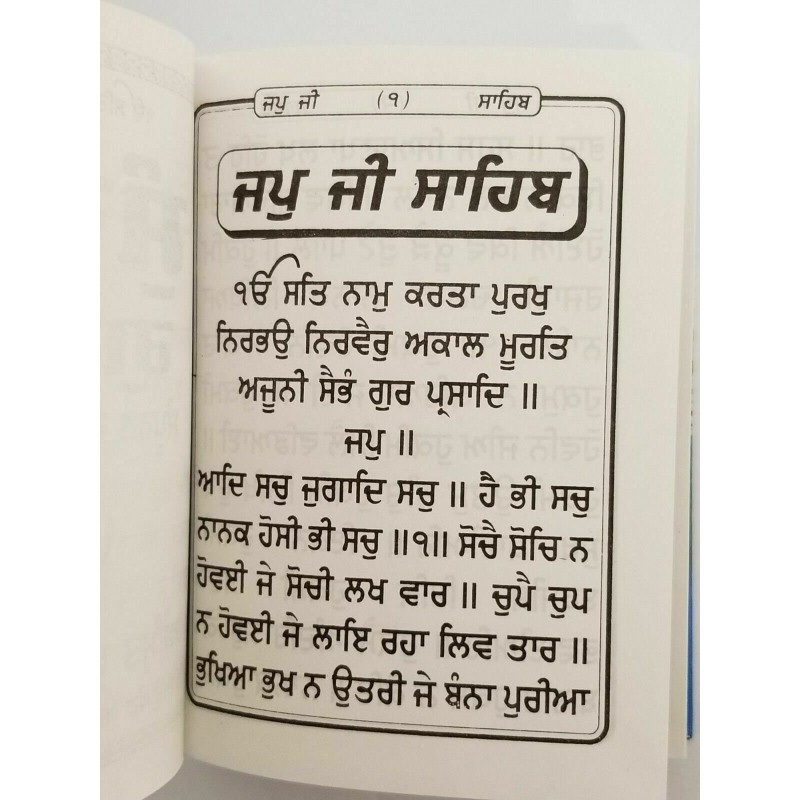 ਜਪੁ ਜੀ (੧) ਸਾਹਿਬ
ਜਪੁ ਜੀ ਸਾਹਿਬ
ੴ ਸਤਿ ਨਾਮੁ ਕਰਤਾ ਪੁਰਖੁ
ਨਿਰਭਉ ਨਿਰਵੈਰੁ ਅਕਾਲ ਮੂਰਤਿ
ਅਜੂਨੀ ਸੈਭੰ ਗੁਰ ਪ੍ਰਸਾਦਿ ॥
ਜਪੁ ॥
ਆਦਿ ਸਚੁ ਜੁਗਾਦਿ ਸਚੁ ॥ ਹੈ ਭੀ ਸਚੁ
ਨਾਨਕ ਹੋਸੀ ਭੀ ਸਚੁ ॥੧॥ ਸੋਚੈ ਸੋਚਿ ਨ
ਹੋਵਈ ਜੇ ਸੋਚੀ ਲਖ ਵਾਰ ॥ ਚੁਪੈ ਚੁਪ
ਨ ਹੋਵਈ ਜੇ ਲਾਇ ਰਹਾ ਲਿਵ ਤਾਰ ॥
ਭੁਖਿਆ ਭੁਖ ਨ ਉਤਰੀ ਜੇ ਬੰਨਾ ਪੁਰੀਆ